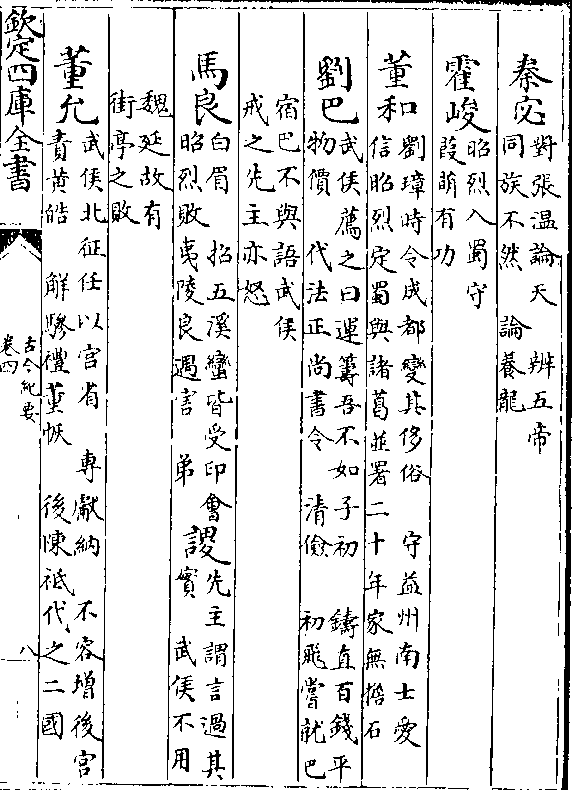 秦宓
對張温論天 辨五帝
同族不然 論養龍
霍峻
昭烈入蜀守
葭萌有功
董和
劉璋時令成都變其侈俗 守益州南士愛
信昭烈定蜀與諸葛並署二十年家無擔石
劉巴
武侯薦之曰運籌吾不如子初 鑄直百錢平
物價 代法正尚書令 清儉 初飛嘗就巴
宿巴不與語武侯
戒之先主亦怒
馬良
白眉 招五溪蠻皆受印會
昭烈敗夷陵良遇害 弟
謖
先主謂言過其
實 武侯不用
魏延故有
街亭之敗
董允
武侯北征任以宫省 專獻納 不容增後宫
責黄皓 解驂禮董恢 後陳祗代之二國
欽定四庫全書
古今紀要
卷四
八